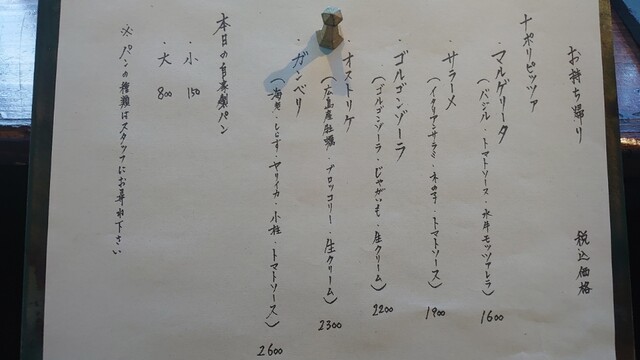 お持ち帰り 税込価格
ナポリピッツァ
・マルゲリータ
(バジル・トマトソース・水牛モッツァレラ) 1600
・サラーメ
(イタリアサラミ・木の子・トマトソース) 1900
・ゴルゴンゾーラ
(ゴルゴンゾーラ・じゃがいも・生クリーム) 2200
・オストリケ
(広島産牡蠣・ブロッコリー・生クリーム) 2300
・ガンベリ
(海老・とこぶし・ヤリイカ・小柱・トマトソース) 2600
本日の自家製パン
・小 150
・大 800
※パンの種類はスタッフにお尋ね下さい